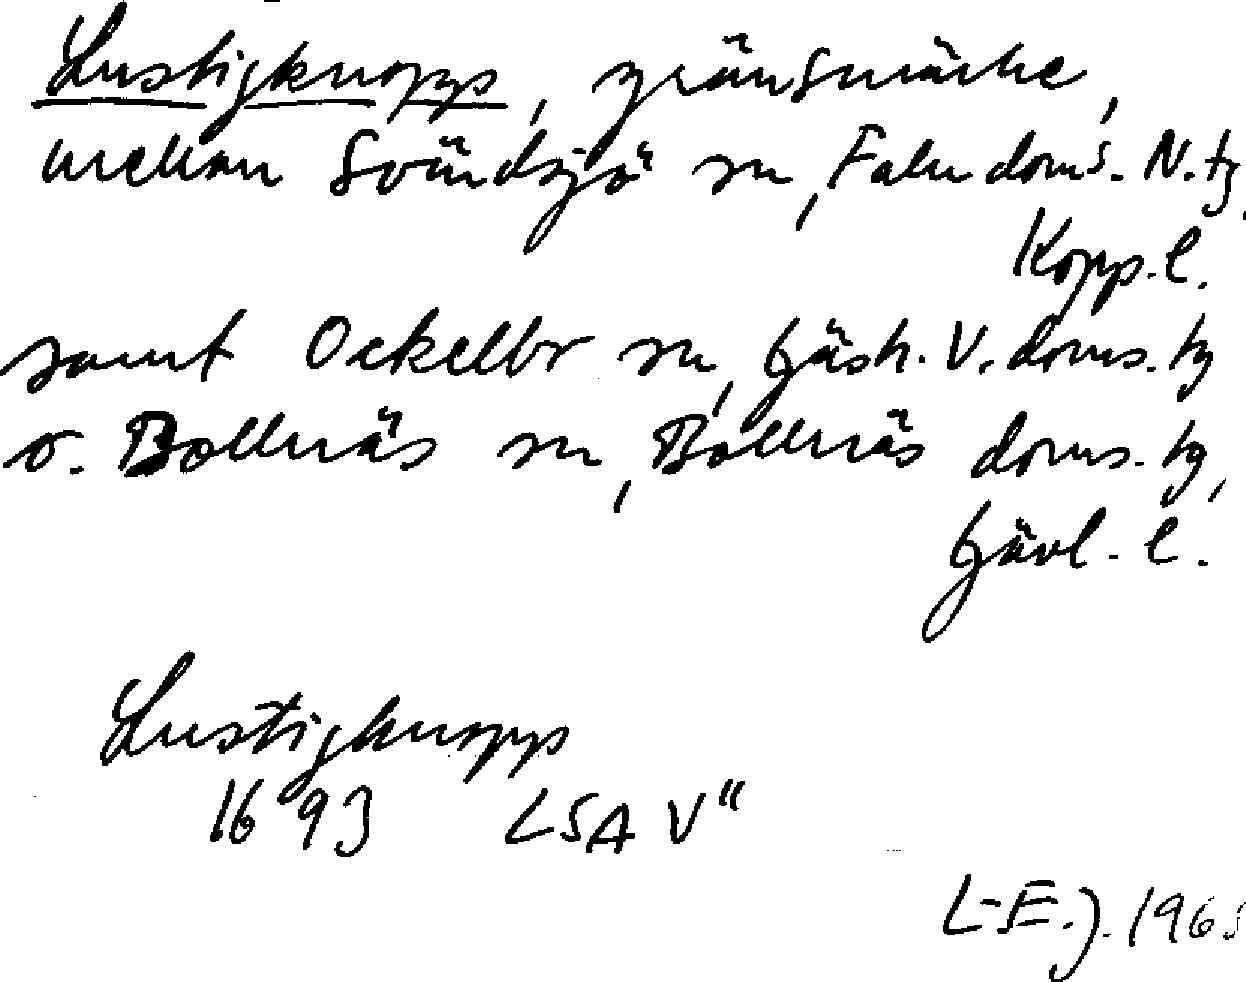 Lustigknopp, gränsmärke,
mellan Svärdsjö sn, Falu doms. N. tg,
Kopp. l.
samt Ockelbo sn, Gästr. V. doms. tg
o. Bollnäs sn, Bollnäs doms. tg,
Gävl. l.
Lustigknopp
1693 LSA V"
L-E. J. 1965